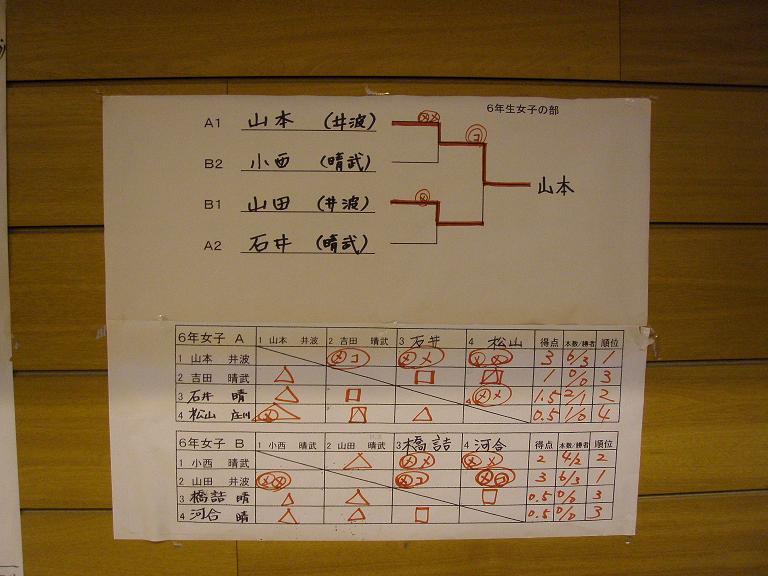 6年生女子の部
A1 山本 (井波)
B2 小西 (晴武)
山本
B1 山田 (井波)
A2 石井 (晴武)
6年女子 A 1 山本 井波 2 吉田 晴武 3 石井 4 松山 得点 本数/勝者 順位
1 山本 井波 メコ メメ メメ 3 6/3 1
2 吉田 晴武 △ □ 1 0/0 3
3 石井 晴 △ □ メメ 1.5 2/1 2
4 松山 庄川 メ △ △ 0.5 1/0 4
6年女子 B 1 小西 晴武 2 山田 井波 3 橋詰 4 河合 得点 本数/勝者 順位
1 小西 晴武 △ メメ メメ 2 4/2 2
2 山田 井波 メメ メコ メコ 3 6/3 1
3 橋詰 晴 △ △ □ 0.5 0/0 3
4 河合 晴 △ △ □ 0.5 0/0 3